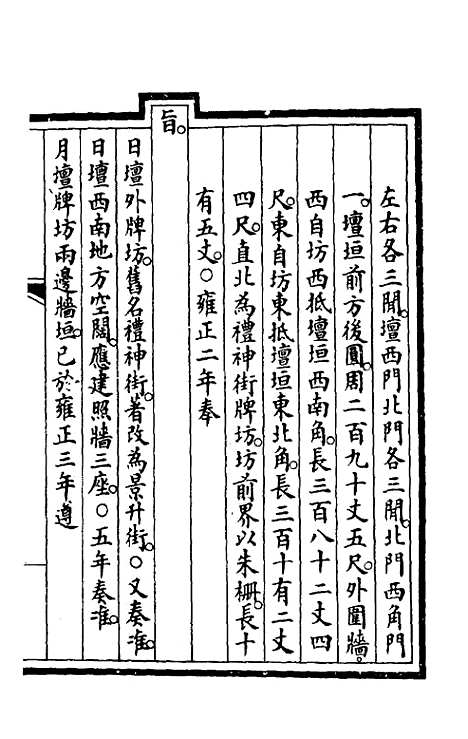 左右各三間。壇西門北門各三間。北門西角門
一。壇垣前方後圓。周二百九十丈五尺。外圍牆。
西自坊西抵壇垣西南角。長三百八十二丈四
尺。東自坊東抵壇垣東北角。長三百十有二丈
四尺。直北為禮神街牌坊。坊前界以朱柵。長十
有五丈。○雍正二年奉
旨。
日壇外牌坊。舊名禮神街。著改為景升街。○又奏准。
日壇西南地方空闊。應建照牆三座。○五年奏准。
月壇牌坊兩邊牆垣。已於雍正三年遵